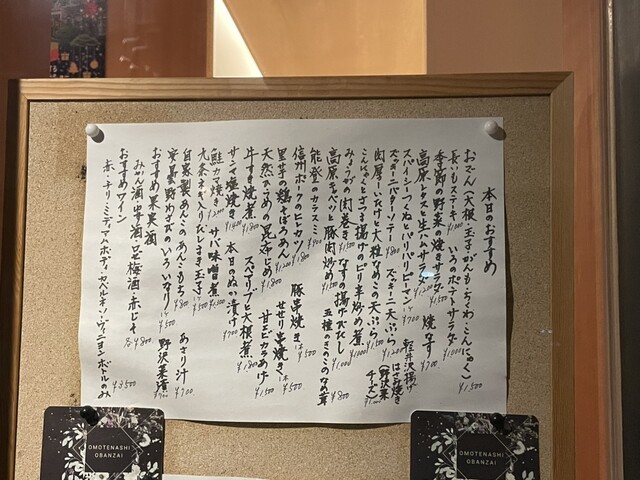 本日のおすすめ
おでん(大根・玉子・がんも・ちくわ・こんにゃく) ¥1,500
長いもステーキ ¥1,000 いろのポテトサラダ ¥1,000
季節の野菜の焼きサラダ ¥1,500 焼なす ¥700
高原レタスと生ハムサラダ
スパイシーつくねとパリパリピーマン ¥700 軽井沢揚げ
ズッキーニバターソテー ズッキーニ天ぷら はさみ焼き
肉厚しいたけと大粒なめこの天ぷら (野沢菜チーズ)
こんにゃくとさつま揚げのピリ辛炒め煮
みょうがの肉巻き なすの揚げびたし
高原キャベツと豚肉炒め 五種のきのこのなめ茸 ¥800
能登のカラスミ ¥900
信州ポークのヒトカツ 豚串焼き ¥500
里芋の鶏そぼろあん せせり串焼き ¥500
天然ひらめの昆布じめ ¥1,800 甘エビカラあげ
牛すき焼煮 スペアリブと大根煮 ¥1,500
サンマ塩焼き 本日のぬか漬け ¥700
鮭カマ焼き サバ味噌煮
九条ネギ入りだしまき玉子
自家製あんこのあんこもち あさり汁 ¥700
安曇野わさびのいろいなり 野沢菜漬
おすすめ果実酒
みかん酒・ゆず酒・ロゼ梅酒・赤しそ 各¥800
おすすめワイン
赤・チリ・ミディアムボディ カベルネ・ソーヴィニヨン ボトルのみ ¥3,500
OMOTENASHI
OBANZAI
OMOTENASHI
OBANZAI